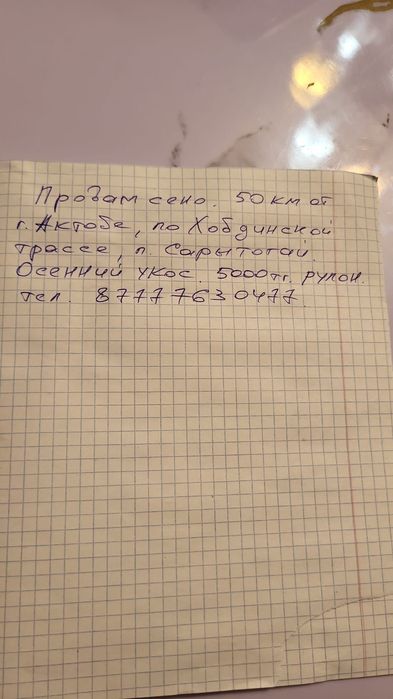 Продам сено. 50 км от
г. Актобе, по Хобдинской
трассе, п. Сарытогай.
Осенний укос. 5000тг. рулон.
тел. 87777630477.